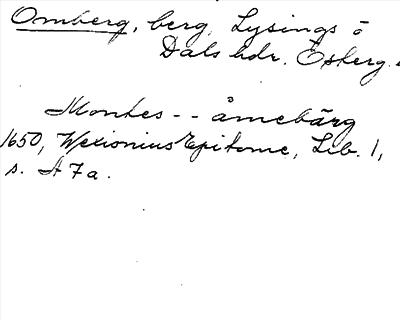 Omberg, berg, Lysings o
Dals hdr. Österg.
Montes -- åmebärg
1650, Wexionius Epitome, Lib. 1,
s. A 7 a.